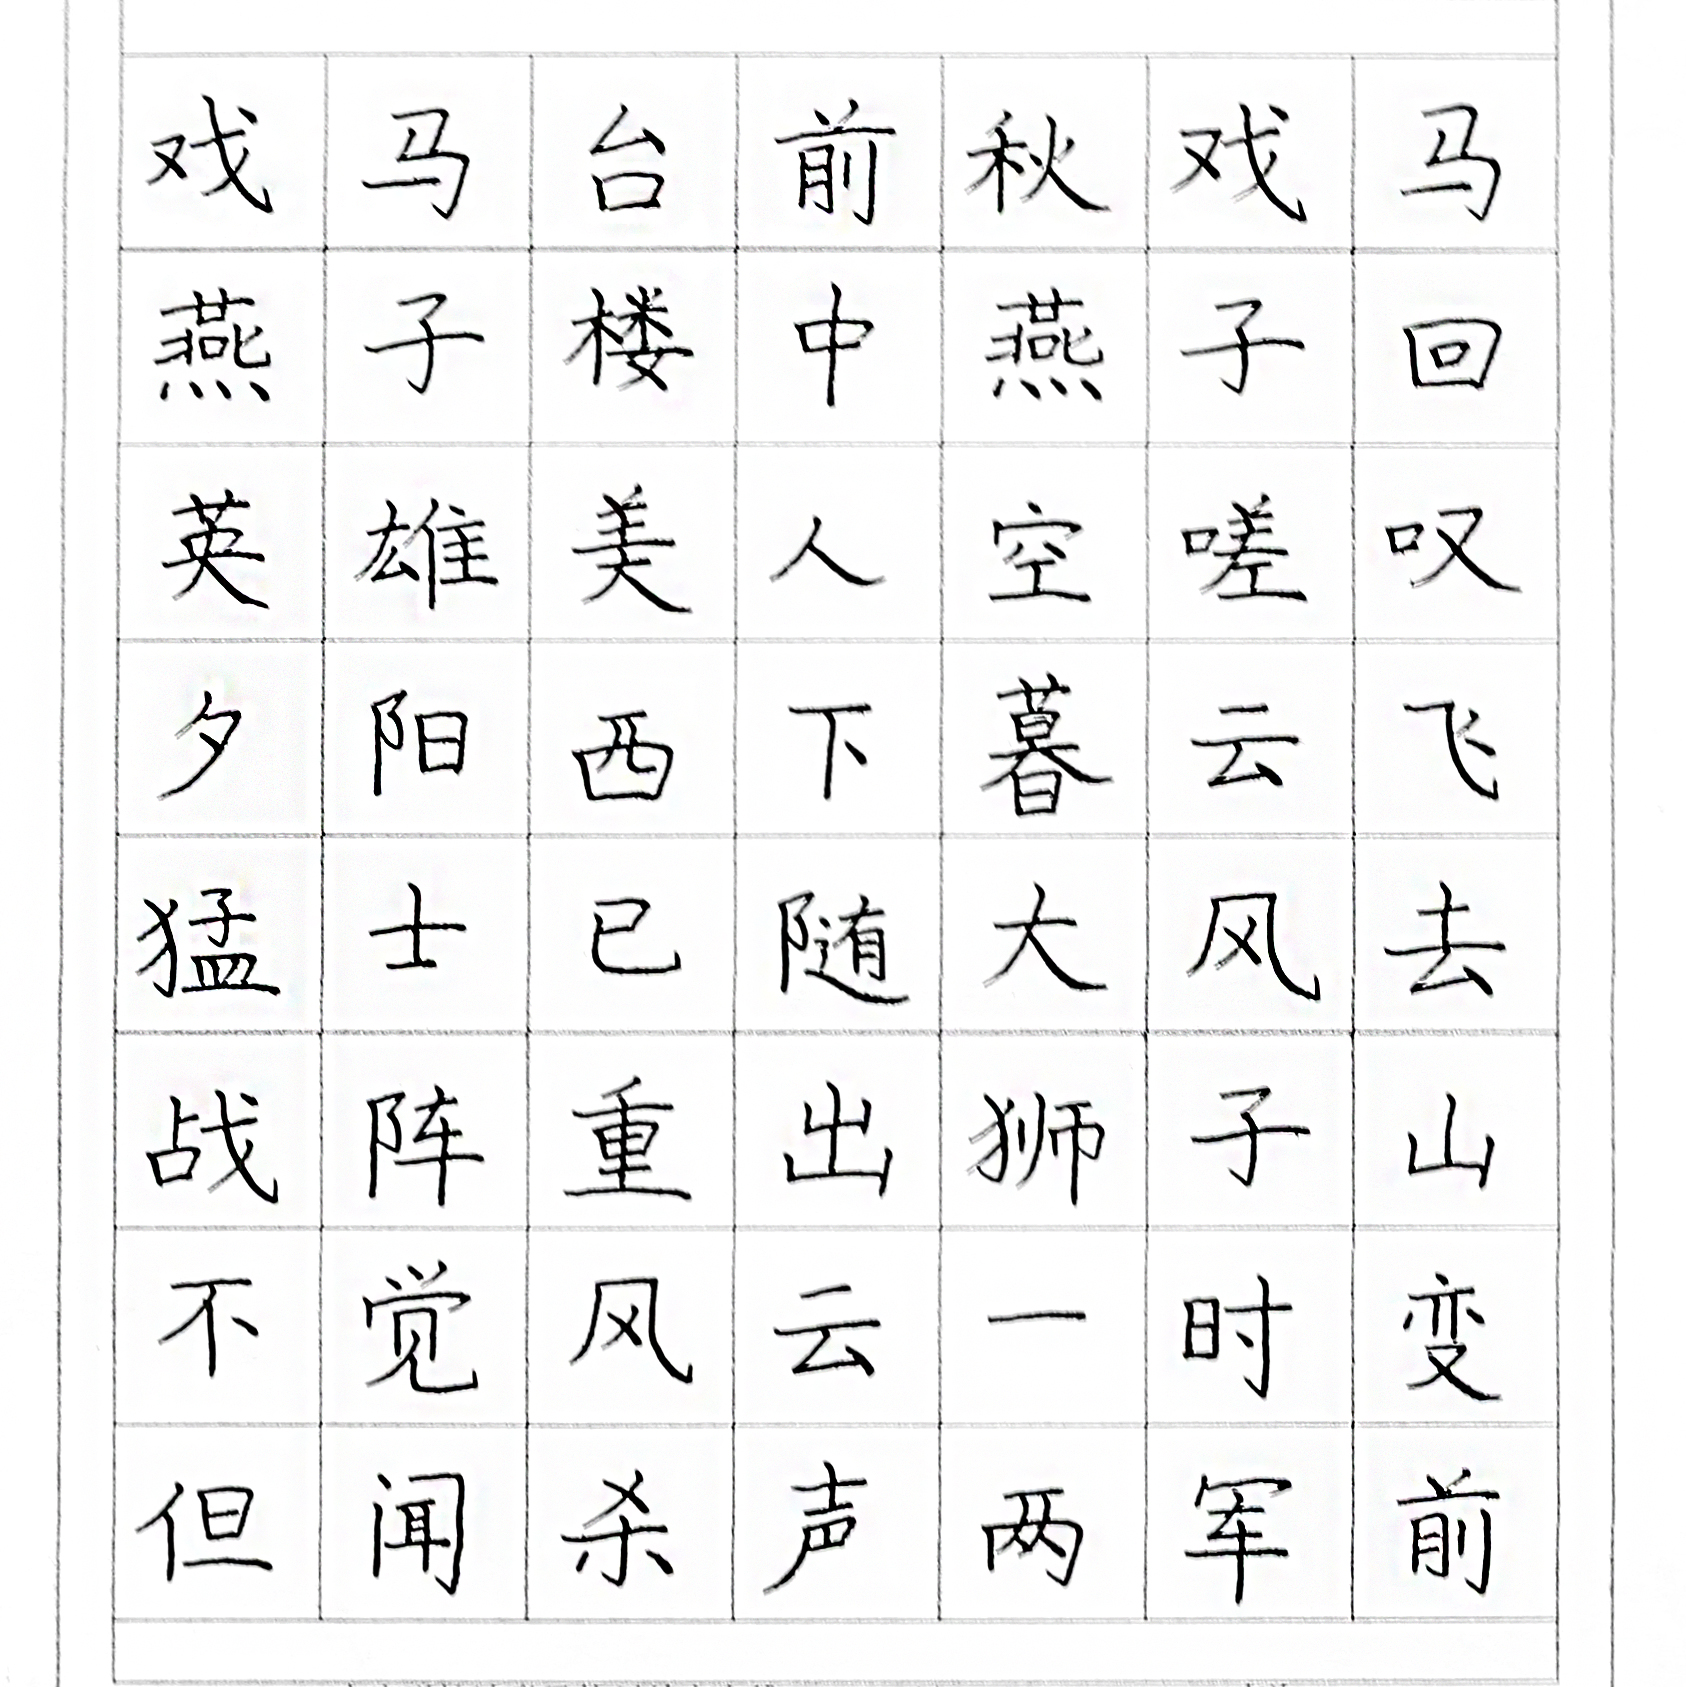 戏马台前秋戏马
燕子楼中燕子回
英雄美人空嗟叹
夕阳西下暮云飞
猛士已随大风去
战阵重出狮子山
不觉风云一时变
但闻杀声两军前